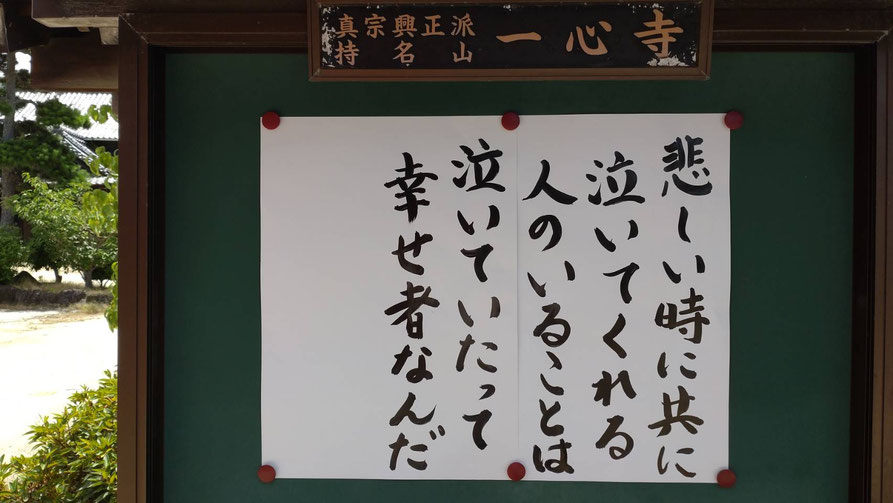 真宗興正派
持名山
一心寺
悲しい時に共に
泣いてくれる
人のいることは
泣いていたって
幸せ者なんだ